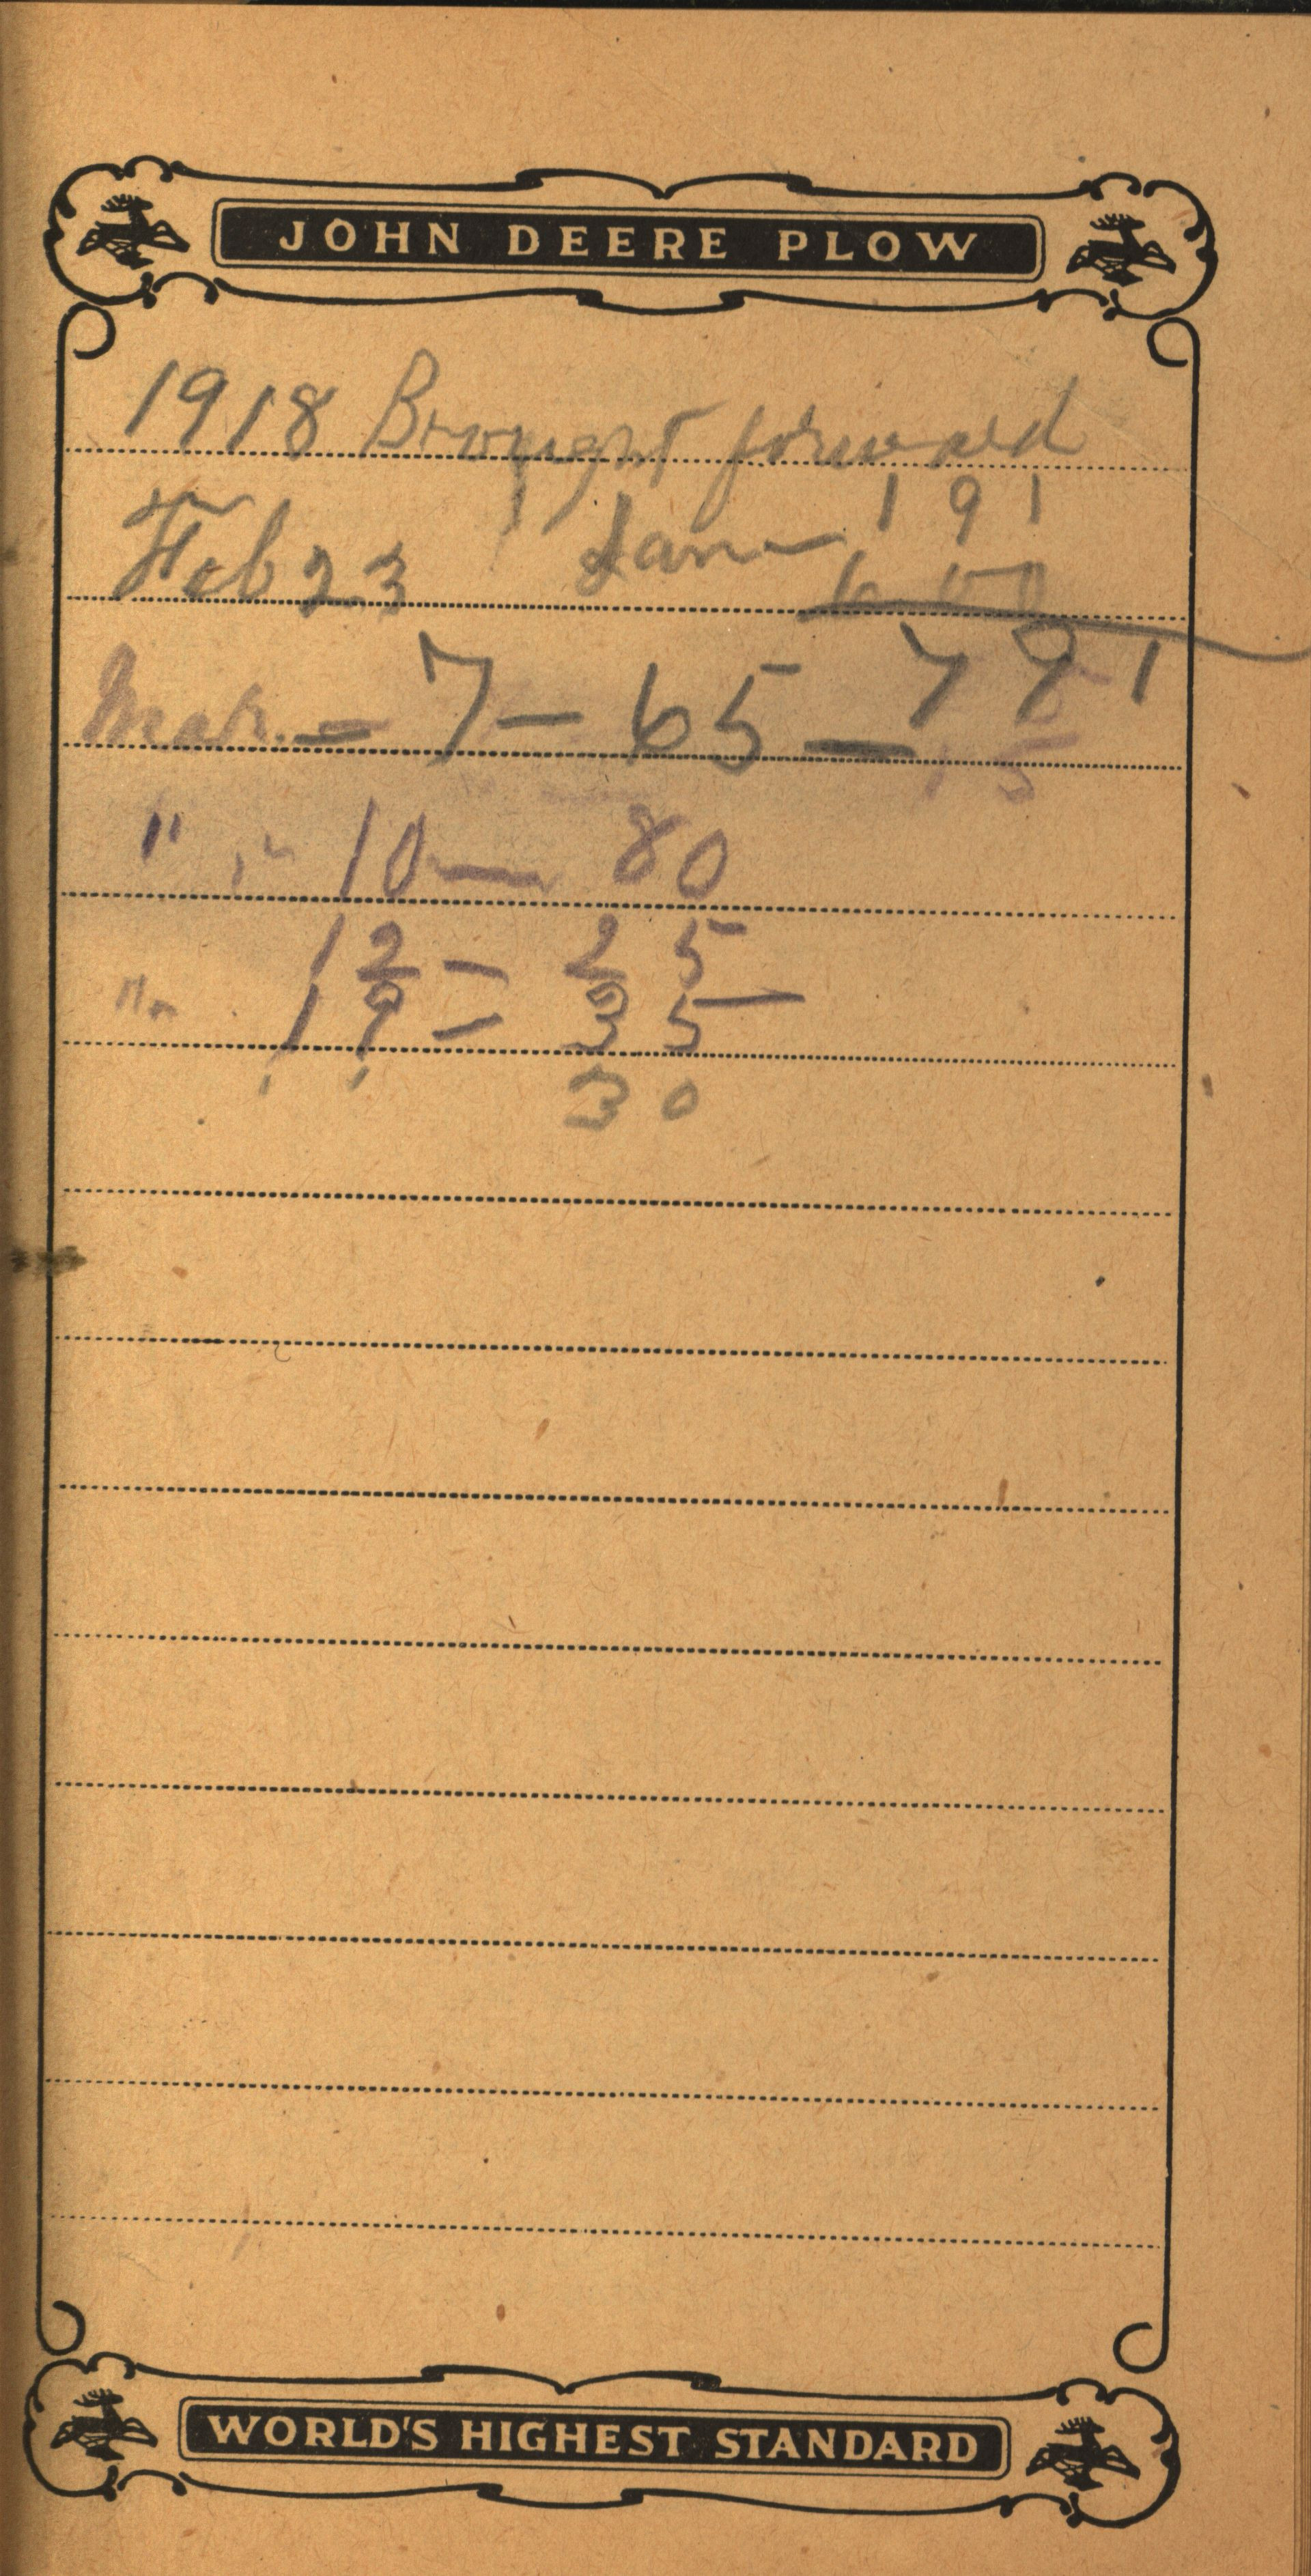 JOHN DEERE PLOW
1918 Brought forward
Jan — 191
Feb 23
Mar. — 7 — 65 — 791
15
" " 10 — 80
12 — 25
" 19 — 35
30
WORLD'S HIGHEST STANDARD